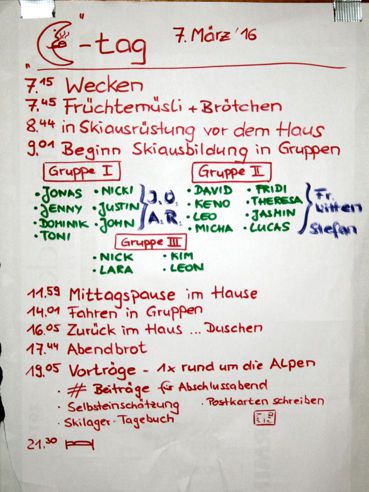 "-tag" 7. März '16
7.15 Wecken
7.45 Früchtemüsli + Brötchen
8.44 in Skiausrüstung vor dem Haus
9.01 Beginn Skiausbildung in Gruppen
Gruppe I Gruppe II
· JONAS · NICKI J.O. · DAVID · FRIDI Fr.
· JENNY · JUSTIN A.R. · KENO · THERESA Witten
· DOMINIK · JOHN · LEO · JASMIN Stefan
· TONI · MICHA · LUCAS
Gruppe III
· NICK · KIM
· LARA · LEON
11.59 Mittagspause im Hause
14.01 Fahren in Gruppen
16.05 Zurück im Haus ... Duschen
17.44 Abendbrot
19.05 Vorträge - 1x rund um die Alpen
· # Beiträge für Abschlussabend
· Selbsteinschätzung · Postkarten schreiben
· Skilager-Tagebuch
21.30